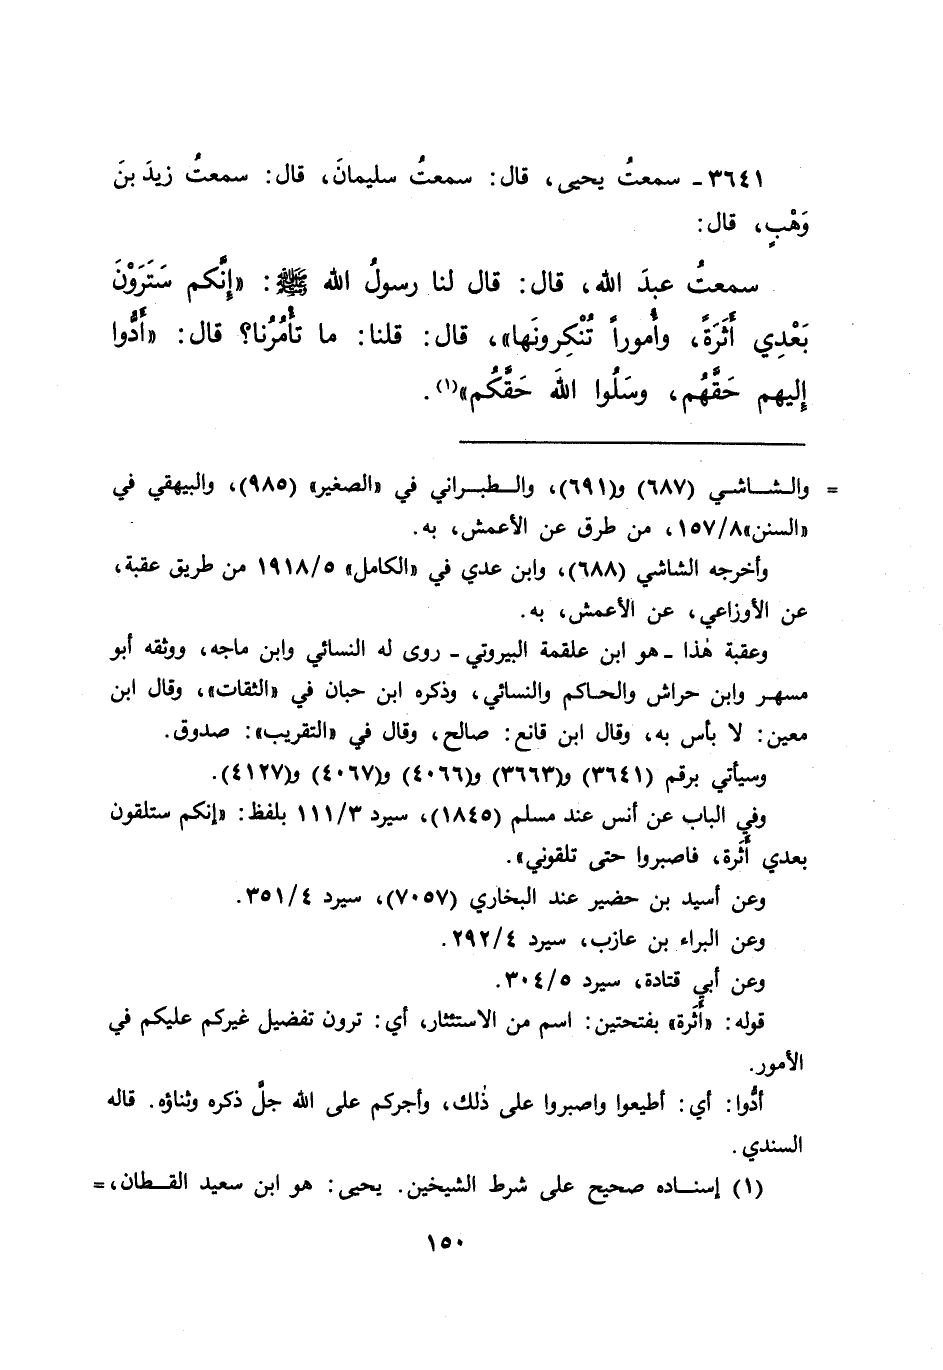 ٣٦٤١ـ سمعتُ يحيى، قال: سمعتُ سليمانَ، قال: سمعتُ زيدَ بنَ
وَهْبٍ، قال:
سمعتُ عبدَ الله، قال: قال لنا رسولُ الله ﷺ: «إنَّكم سَتَرَوْنَ
بَعْدِي أَثَرَةً، وأُموراً تُنْكِرونَها»، قال: قلنا: ما تأْمُرُنا؟ قال: «أَدُّوا
إليهم حَقَّهُم، وسَلُوا اللهَ حَقَّكُم»(١).
= والشاشي (٦٨٧) و(٦٩١)، والطبراني في «الصغير» (٩٨٥)، والبيهقي في
«السنن»١٥٧/٨، من طرق عن الأعمش، به.
وأخرجه الشاشي (٦٨٨)، وابن عدي في «الكامل» ١٩١٨/٥ من طريق عقبة،
عن الأوزاعي، عن الأعمش، به.
وعقبة هٰذا ـ هو ابن علقمة البيروتي ـ روى له النسائي وابن ماجه، ووثقه أبو
مسهر وابن خراش والحاكم والنسائي، وذكره ابن حبان في «الثقات»، وقال ابن
معين: لا بأس به، وقال ابن قانع: صالح، وقال في «التقريب»: صدوق.
وسيأتي برقم (٣٦٤١) و(٣٦٦٣) و(٤٠٦٦) و(٤٠٦٧) و(٤١٢٧).
وفي الباب عن أنس عند مسلم (١٨٤٥)، سيرد ١١١/٣ بلفظ: «إنكم ستلقون
بعدي أَثرة، فاصبروا حتى تلقوني».
وعن أسيد بن حضير عند البخاري (٧٠٥٧)، سيرد ٣٥١/٤.
وعن البراء بن عازب، سيرد ٢٩٢/٤.
وعن أبي قتادة، سيرد ٣٠٤/٥.
قوله: «أَثَرة» بفتحتين: اسم من الاستئثار، أي: ترون تفضيل غيركم عليكم في
الأمور.
أدُّوا: أي: أطيعوا واصبروا على ذٰلك، وأجركم على الله جلَّ ذكره وثناؤه. قاله
السندي.
(١) إسناده صحيح على شرط الشيخين. يحيى: هو ابن سعيد القطان، =
١٥٠